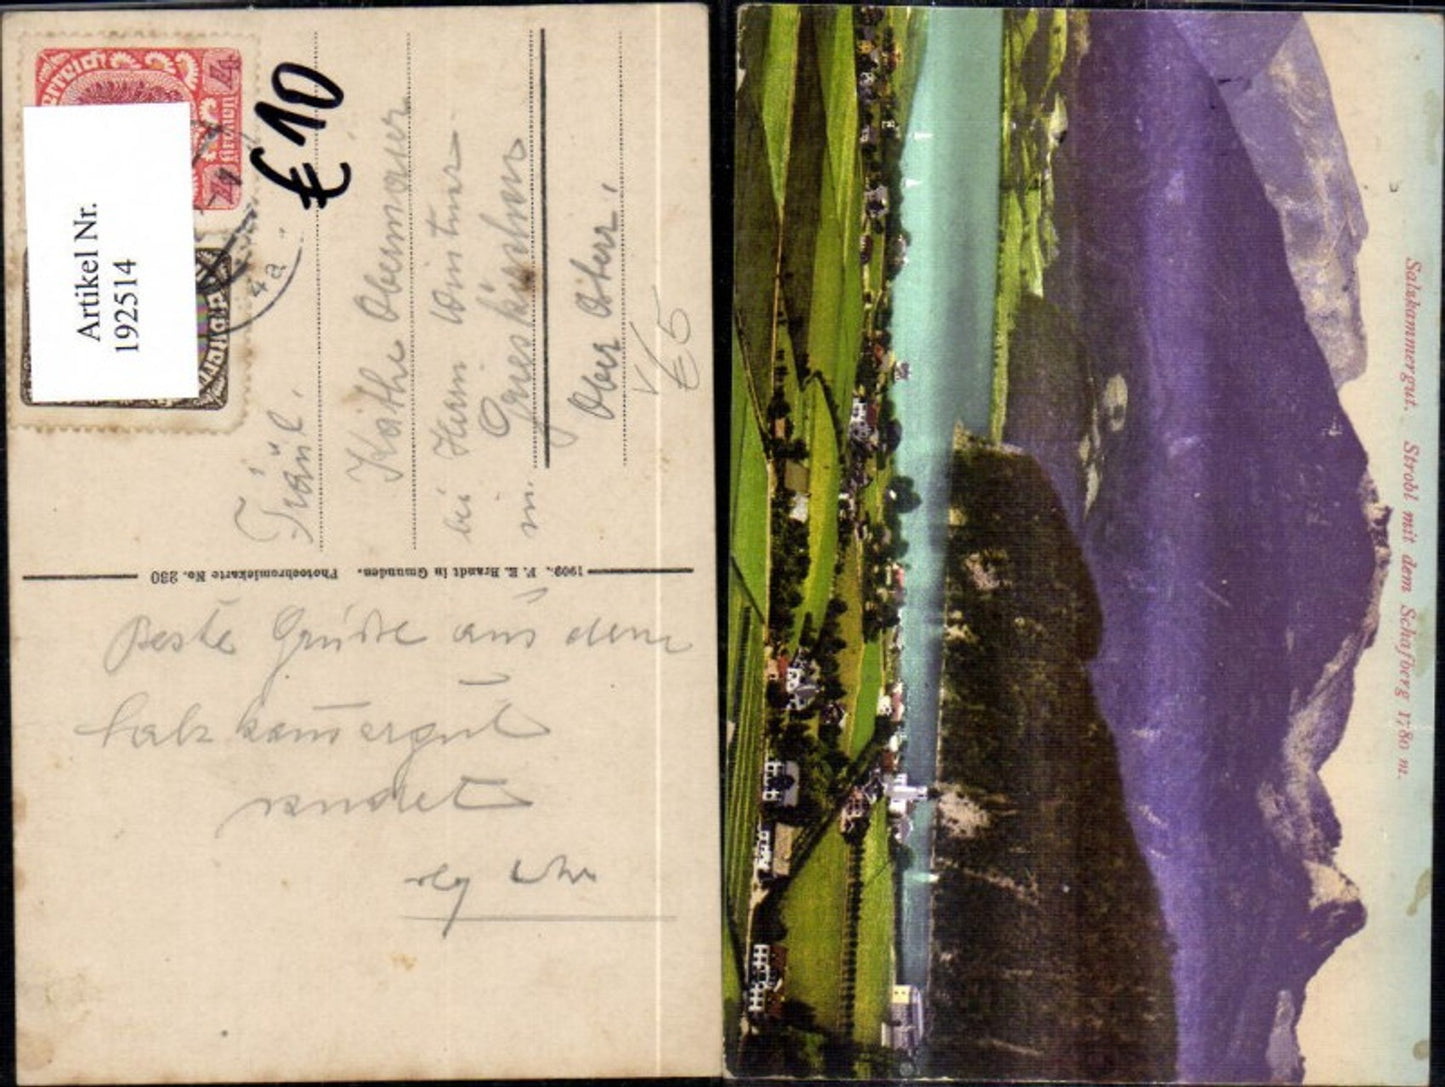 Artikel Nr.
192514
€ 10
4
4
Kronen
4a
Fräul.
Käthe Obermayer
bei Herrn Winter
in Grieskirchen
Ober Österr.
€ 5
1909. F. E. Brandt in Gmunden. Photochromiekarte No. 230
Beste Grüße aus dem
Salzkammergut
sendet
Salzkammergut. Strobl mit dem Schafberg 1780 m.